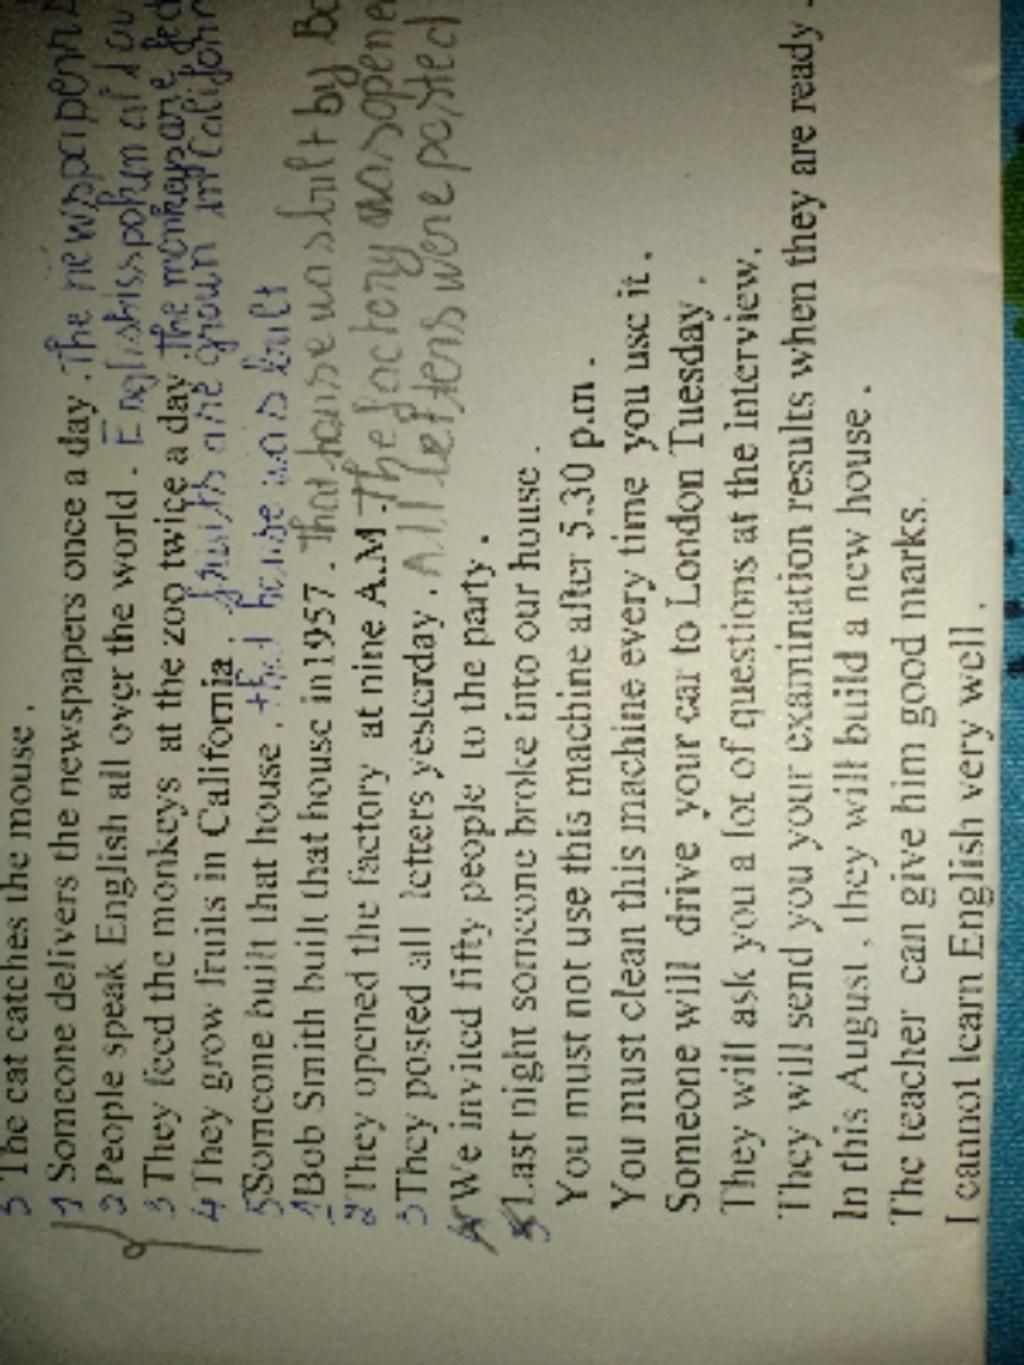 5 The cat catches the mouse .
1 Someone delivers the newspapers once a day . The newspapers
2 People speak English all over the world . English is spoken all ov
3 They feed the monkeys at the zoo twice a day the monkeys are fed
4 They grow fruits in California . fruits are grown in Californ
5 Someone built that house . that house was built
1 Bob Smith built that house in 1957 . That house was built by Bo
2 They opened the factory at nine A.M . The factory was opene
3 They posted all letters yesterday . All letters were posted
4 We invited fifty people to the party .
5 Last night someone broke into our house .
You must not use this machine after 5.30 p.m .
You must clean this machine every time you use it .
Someone will drive your car to London Tuesday .
They will ask you a lot of questions at the interview.
They will send you your examination results when they are ready .
In this August , they will build a new house .
The teacher can give him good marks.
I cannot learn English very well .